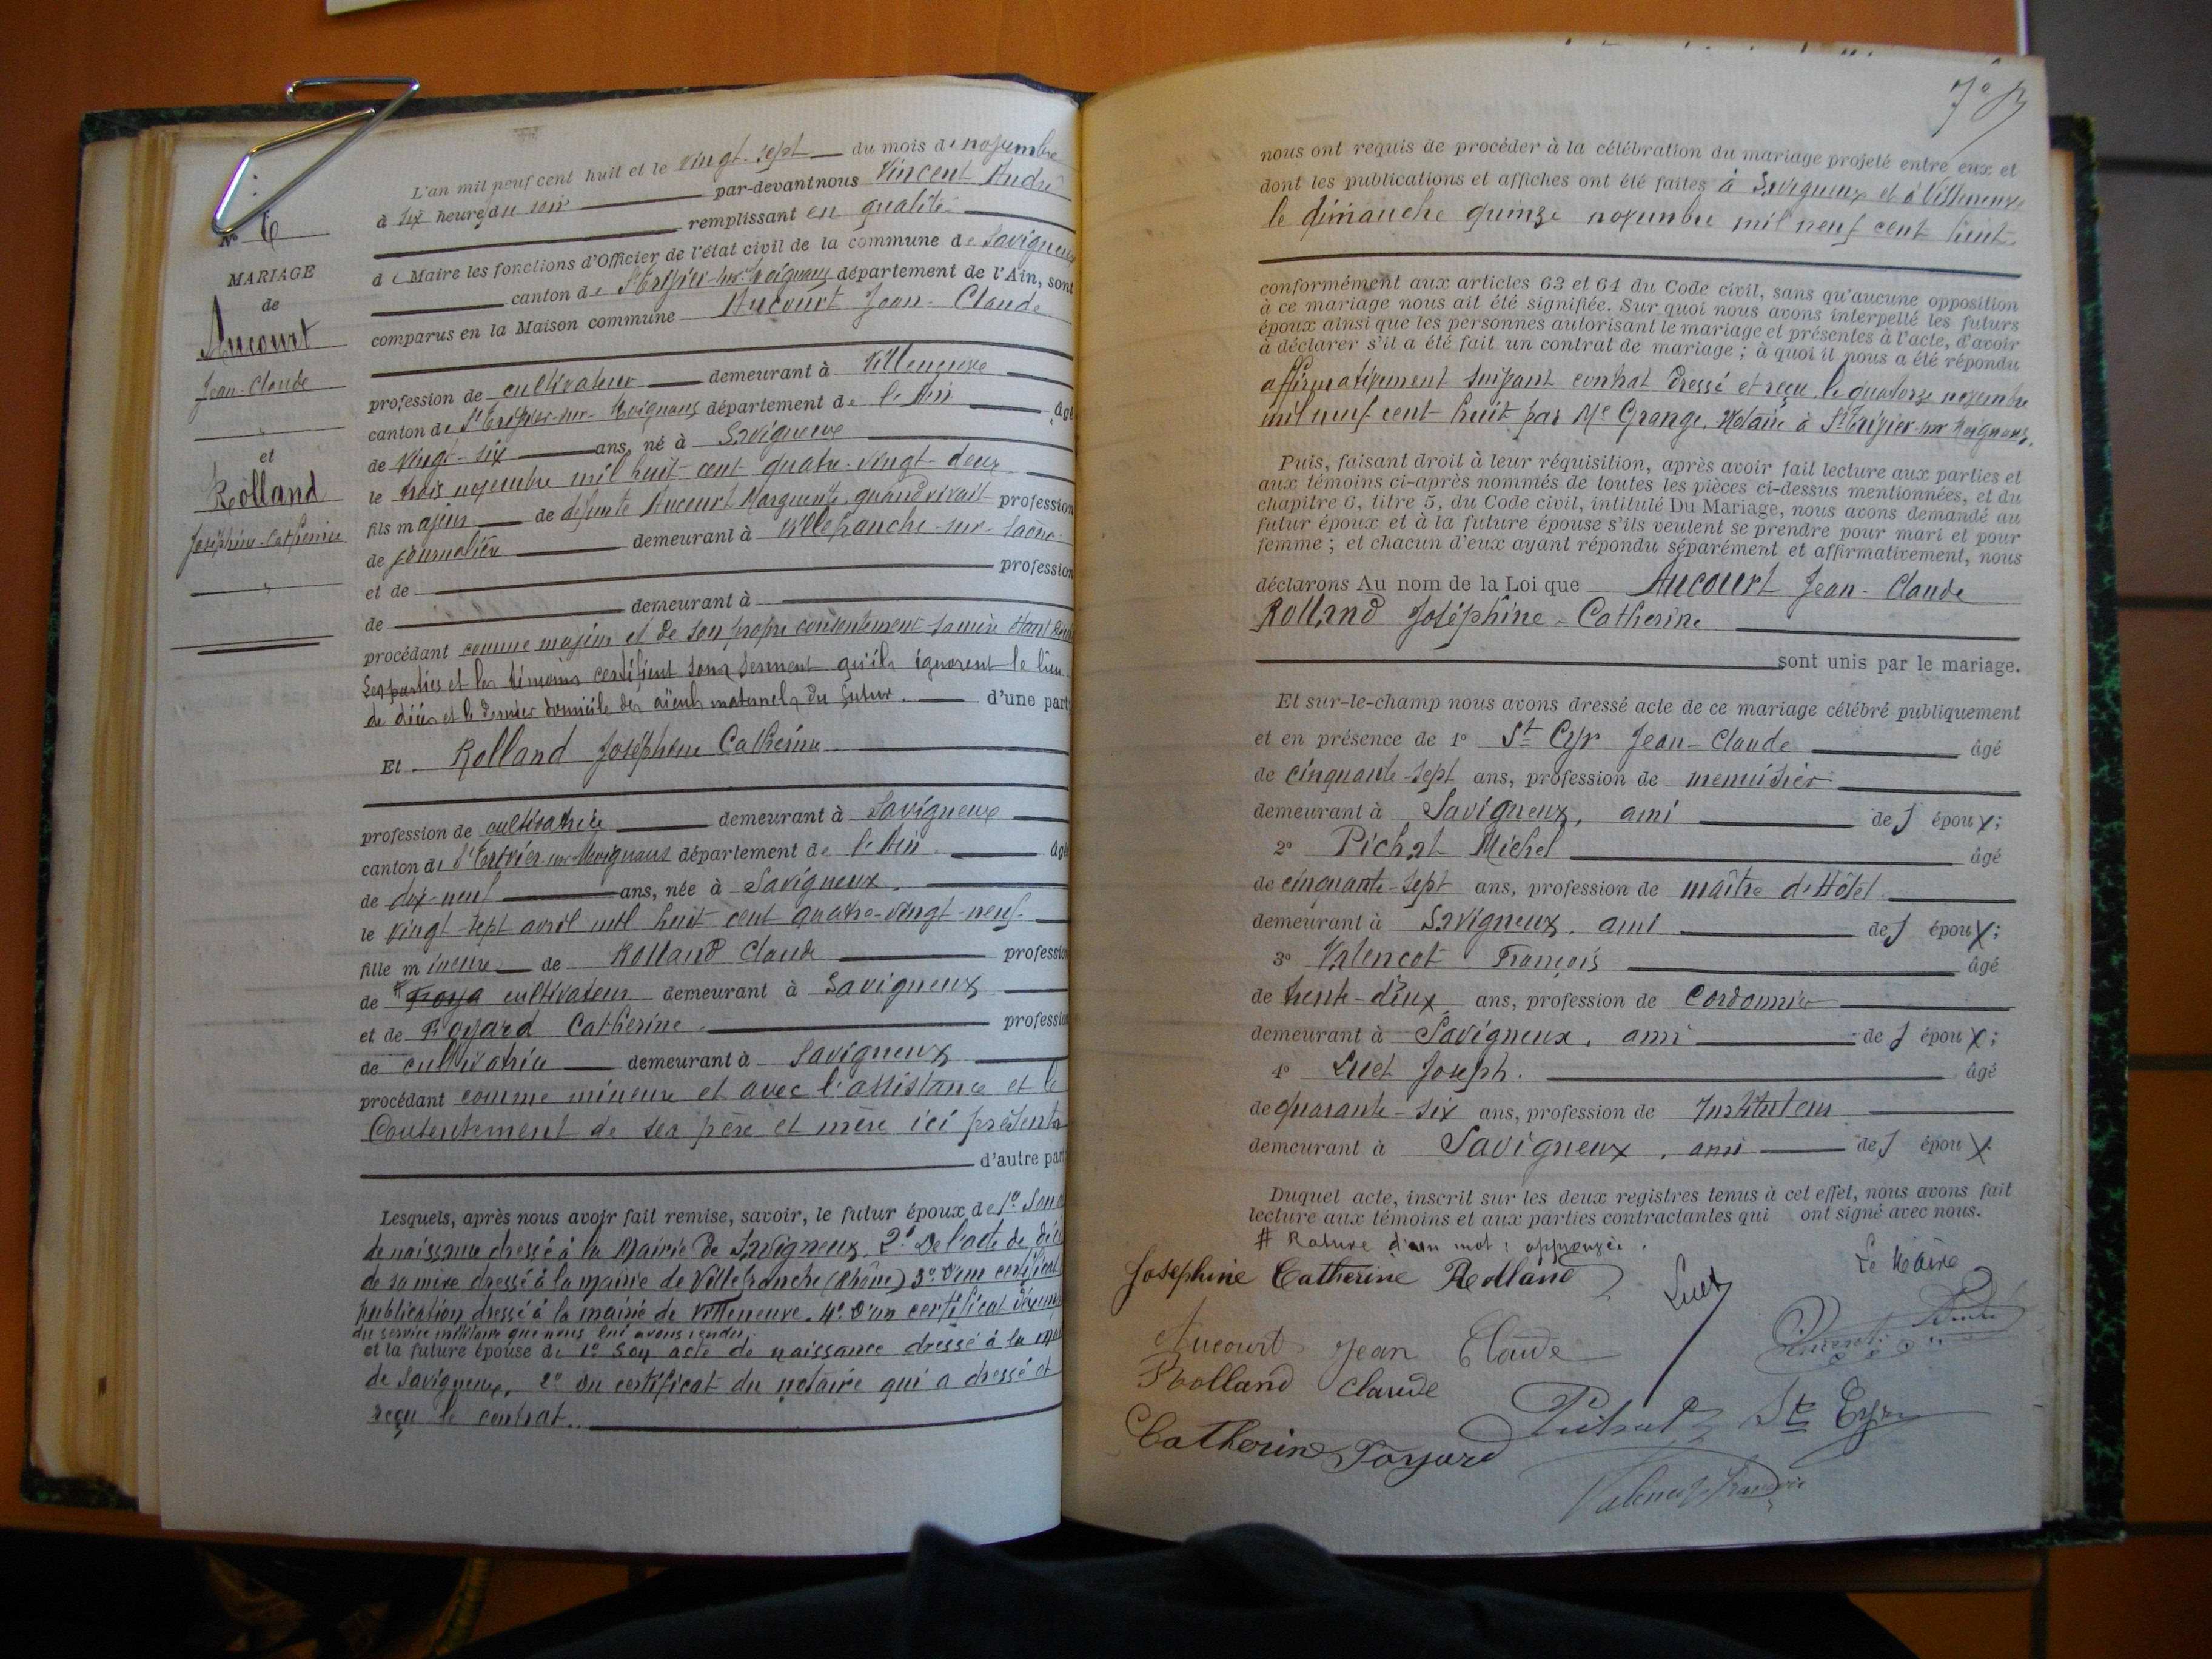 N° 6
MARIAGE
de
Aucourt
Jean-Claude
et
Rolland
Joséphine-Catherine
L'an mil neuf cent huit et le vingt-sept du mois de novembre
à six heures du soir par-devant nous Vincent André
remplissant en qualité
de Maire les fonctions d'Officier de l'état civil de la commune de Savigneux
canton de St Trivier-sur-Moignans département de l'Ain, sont
comparus en la Maison commune Aucourt Jean-Claude
profession de cultivateur demeurant à Villeneuve
canton de St Trivier-sur-Moignans département de l'Ain âgé
de vingt-six ans, né à Savigneux
le trois novembre mil huit cent quatre-vingt-deux
fils majeur de défunte Aucourt Marguerite quand vivait profession
de journalière demeurant à Villefranche-sur-Saône
et de profession
de demeurant à
procédant comme majeur et de son propre consentement sa mère étant
Les parties et les témoins certifient sous serment qu'ils ignorent le lieu
de décès et le dernier domicile des aïeuls maternels du futur. d'une part
Et Rolland Joséphine Catherine
profession de cultivatrice demeurant à Savigneux
canton de St Trivier-sur-Moignans département de l'Ain âgée
de dix-neuf ans, née à Savigneux
le vingt-sept avril mil huit cent quatre-vingt-neuf
fille mineure de Rolland Claude profession
de # Foya cultivateur demeurant à Savigneux
et de Foyard Catherine profession
de cultivatrice demeurant à Savigneux
procédant comme mineure et avec l'assistance et le
consentement de ses père et mère ici présents
d'autre part
Lesquels, après nous avoir fait remise, savoir, le futur époux de 1° Son
de naissance dressé à la Mairie de Savigneux, 2° De l'acte de décès
de sa mère dressé à la mairie de Villefranche (Rhône) 3° D'un certificat
publication dressé à la mairie de Villeneuve. 4° D'un certificat
du service militaire que nous lui avons rendu,
et la future épouse de 1° Son acte de naissance dressé à la
de Savigneux, 2° Du certificat du notaire qui a dressé et
reçu le contrat.
nous ont requis de procéder à la célébration du mariage projeté entre eux et
dont les publications et affiches ont été faites à Savigneux et à Villeneuve
le dimanche quinze novembre mil neuf cent huit
conformément aux articles 63 et 64 du Code civil, sans qu'aucune opposition
à ce mariage nous ait été signifiée. Sur quoi nous avons interpellé les futurs
époux ainsi que les personnes autorisant le mariage et présentes à l'acte, d'avoir
à déclarer s'il a été fait un contrat de mariage ; à quoi il nous a été répondu
affirmativement suivant contrat dressé et reçu le quatorze novembre
mil neuf cent huit par Me Grange, Notaire à St Trivier-sur-Moignans.
Puis, faisant droit à leur réquisition, après avoir fait lecture aux parties et
aux témoins ci-après nommés de toutes les pièces ci-dessus mentionnées, et du
chapitre 6, titre 5, du Code civil, intitulé Du Mariage, nous avons demandé au
futur époux et à la future épouse s'ils veulent se prendre pour mari et pour
femme ; et chacun d'eux ayant répondu séparément et affirmativement, nous
déclarons Au nom de la Loi que Aucourt Jean-Claude
Rolland Joséphine-Catherine
sont unis par le mariage.
Et sur-le-champ nous avons dressé acte de ce mariage célébré publiquement
et en présence de 1° St Cyr Jean-Claude âgé
de cinquante-sept ans, profession de menuisier
demeurant à Savigneux, ami des époux ;
2° Pichat Michel âgé
de cinquante-sept ans, profession de maître d'Hôtel
demeurant à Savigneux, ami des époux ;
3° Valencot François âgé
de trente-deux ans, profession de Cordonnier
demeurant à Savigneux, ami des époux ;
4° Luet Joseph. âgé
de quarante-six ans, profession de Instituteur
demeurant à Savigneux, ami des époux.
Duquel acte, inscrit sur les deux registres tenus à cet effet, nous avons fait
lecture aux témoins et aux parties contractantes qui ont signé avec nous.
# Rature d'un mot : approuvée.
Joséphine Catherine Rolland Luet Le Maire
Aucourt Jean Claude Vincent André
Rolland Claude Pichat St Cyr
Catherine Foyard
Valencot François